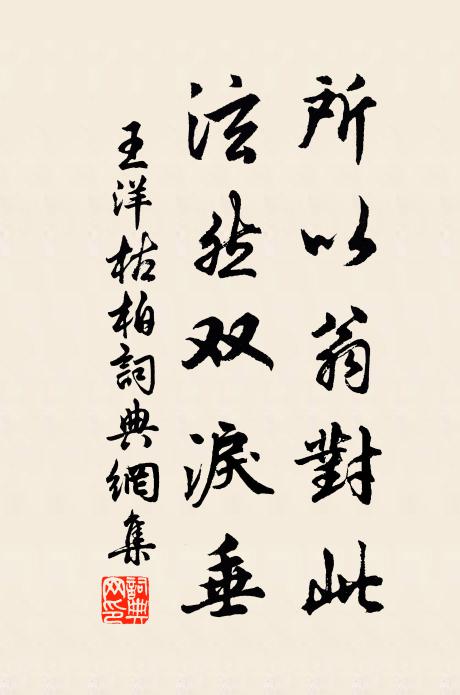 所以翁對此
泫然双淚垂
王洋枯柏詞典網集
詞典网印